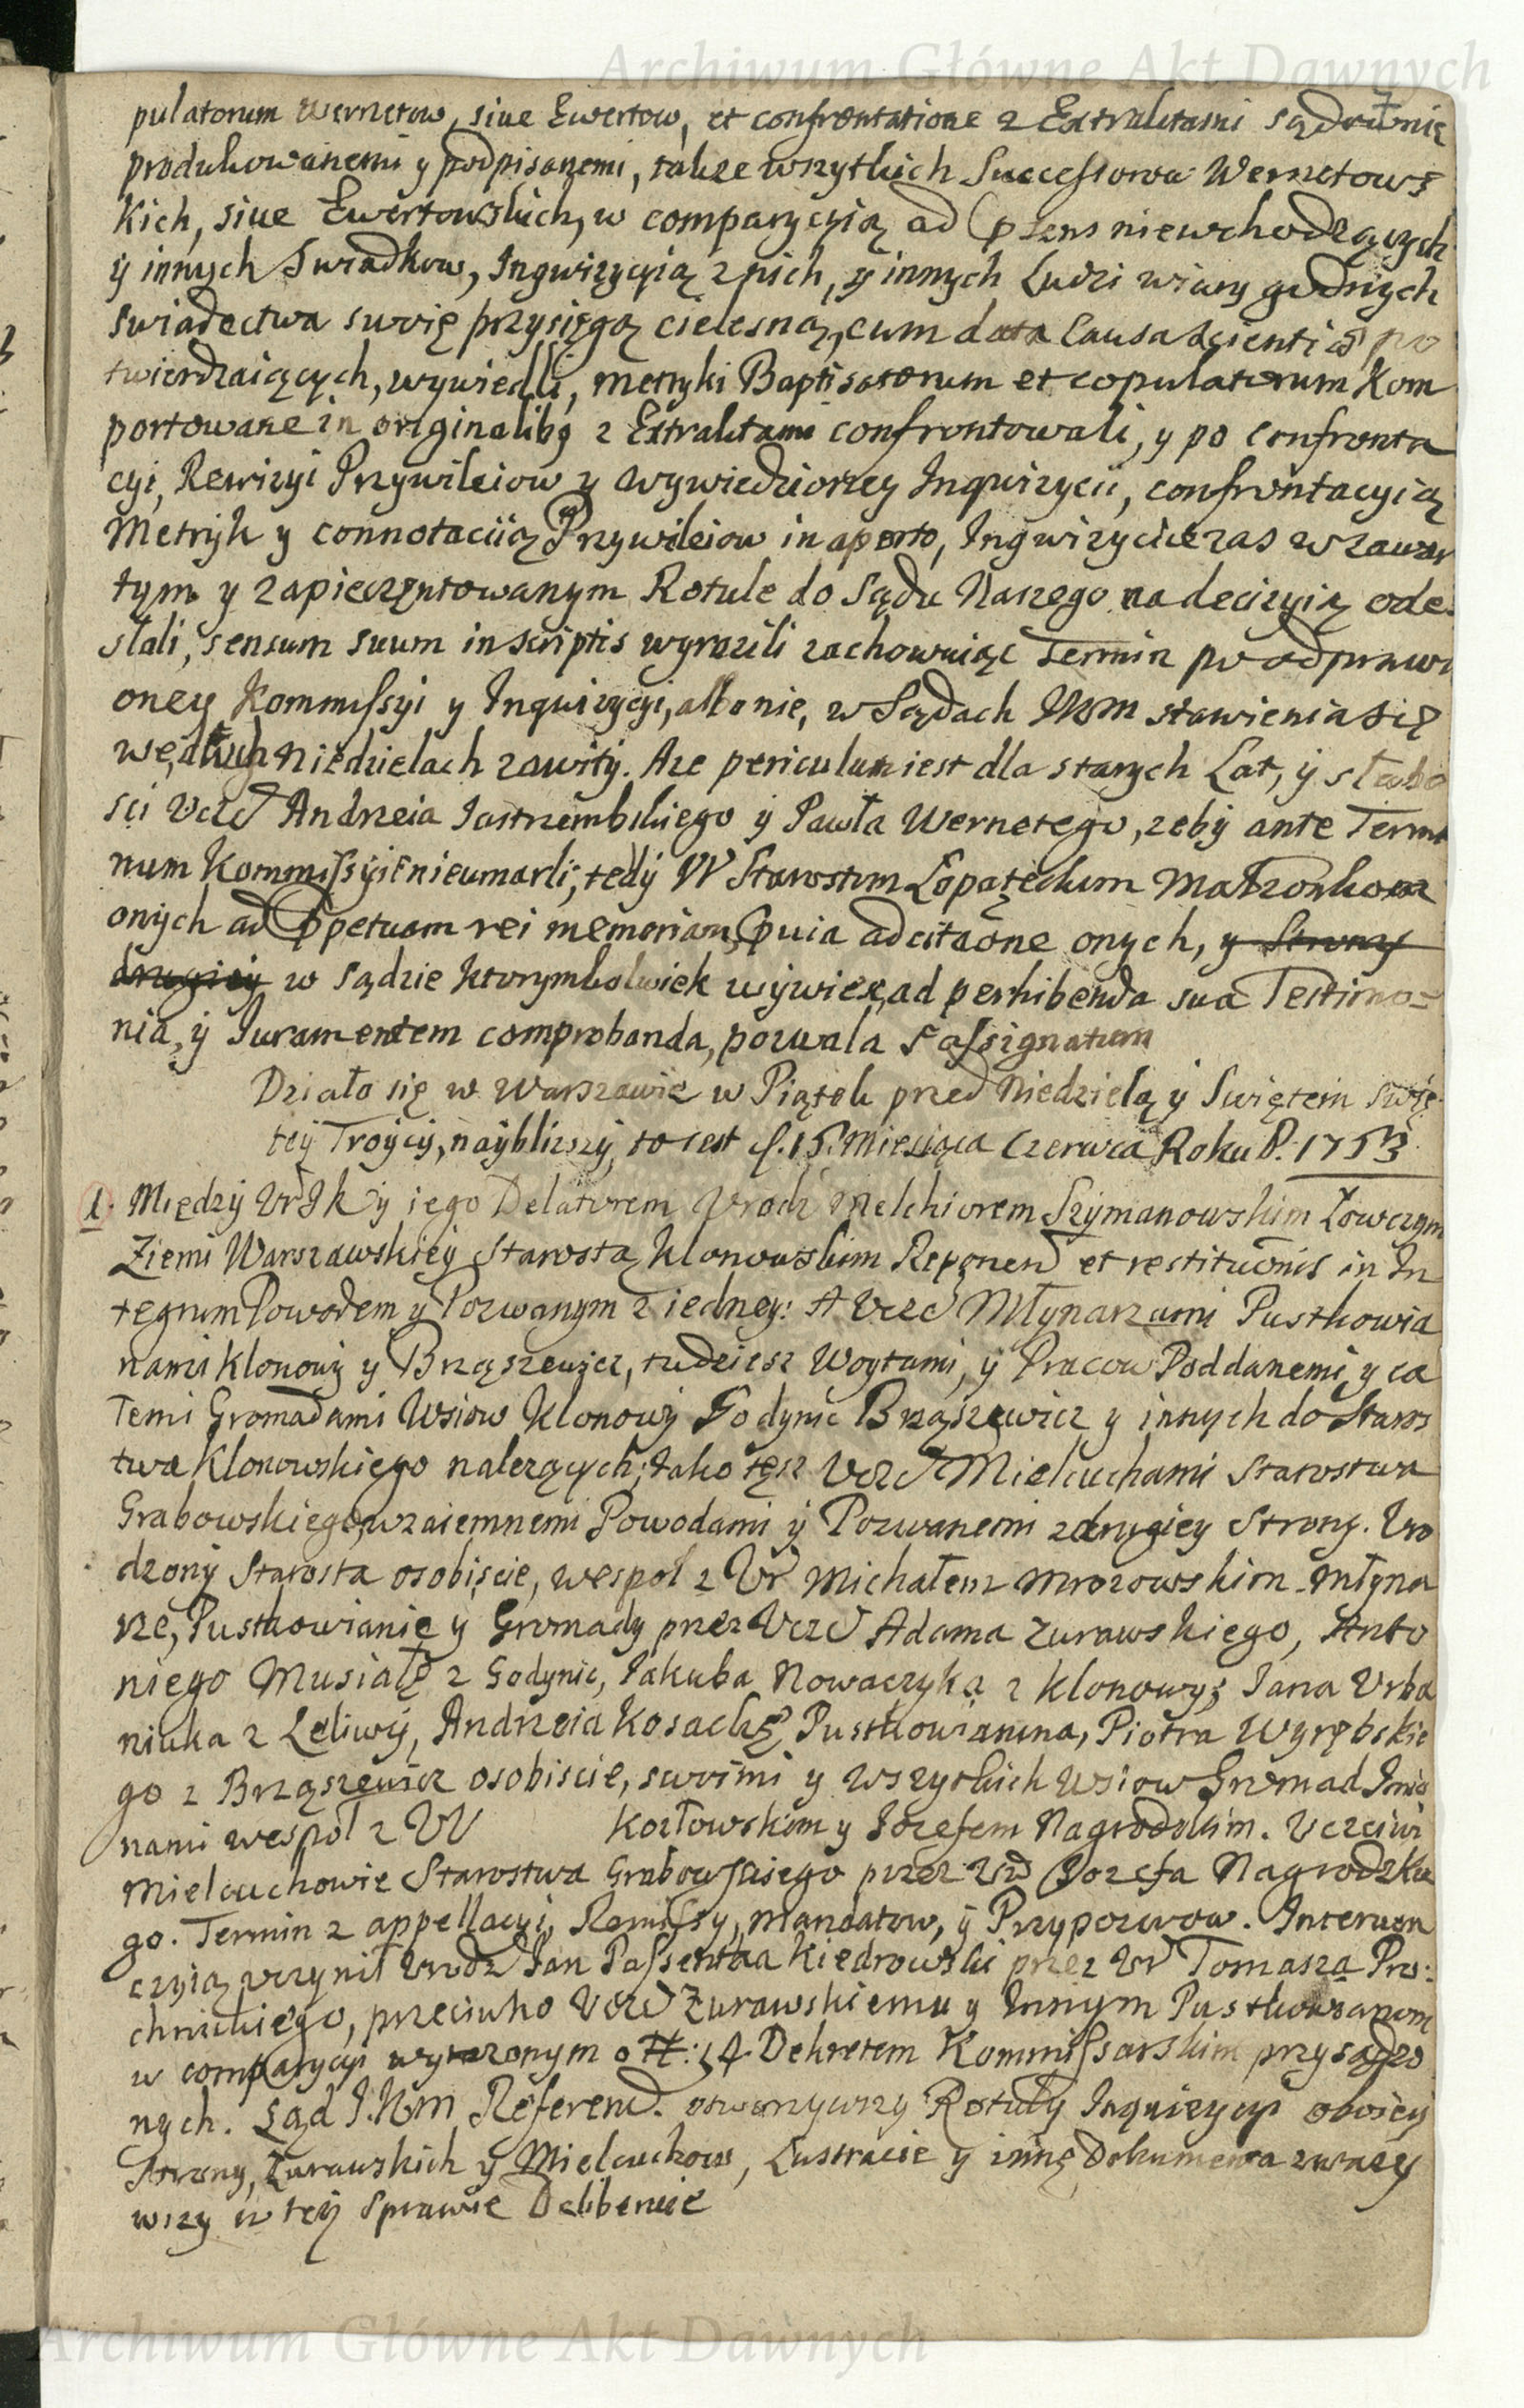 Archiwum Główne Akt Dawnych
pulatorum Wernetow, siue Ewertow, et confrontatione z Extraktami sądownie
produkowanemi y podpisanemi, takze wszytkich Successorow Wernetows
kich, siue Ewertowskich, w comparycyią ad psens niewchodzących
ÿ innych Swiadkow, Inqwizycyią z nich, ÿ innych Ludzi wiary godnych
swiadectwa swoię przysięgą cielesną, cum data Causa scientiæ po
twierdzaiących, wywiedli, metryki Baptisatorum et copulatorum Kom
portowane in originalibꝫ z Extraktami confrontowali, y po confronta
cyi, Rewizyi Przywileiow y wywiedzioney Inqwizycii, confrontacyią
Metryk y connotacią Przywileiow in aperto, Inqwizycie zas w zawar
tym y zapieczętowanym Rotule do Sądu Naszego na decizyią ode
słali, sensum suum in scriptis wyrazili zachowuiąc Termin po odprawi
oney Kommissyi y Inquizycyi, albo nie, w Sądach JKM stawienia się
we dwuch niedzielach zawitÿ. Aze periculum iest dla starych Lat, ÿ słabo
sci Vczć Andrzeia Jastrzembskiego ÿ Pawła Wernetego, zebÿ ante Termi
num Kommissÿie nieumarli, tedÿ W Starostom Łopateckim Małzonkom
onych ad ppetuam rei memoriam, puia adcitaõne onych, y Strony
drugiey w sądzie ktorymkolwiek wÿwiex, ad perhibenda sua Testimo-
nia, ÿ Juramentem comprobanda, pozwala Sassignatum
Działo się w Warszawie w Piątek przed Niedzielą ÿ Swiętem Swię
teÿ Troÿcÿ, naÿblizszÿ, to iest d. 15. Miesiąca Czerwca Roku P. 1753
1. Międzÿ Vr JK ÿ iego Delatorem Vrodz Melchiorem Szÿmanowskim Łowczym
Ziemi Warszawskieÿ Starostą Klonowskim Reponen et restitutionis in In
tegrum Powodem y Pozwanym z iedney: A Vczć Młynarzami Pustkowia
nami Klonowÿ y Brząszewicz, tudziesz Woytami, ÿ Pracow Poddanemi, y ca
łemi Gromadami Wsiow Klonowÿ Godynic Brząszewicz y innych do Staros
twa Klonowskiego nalezących; Jako tesz Vczć Mielcuchami Starostwa
Grabowskiego, wzaiemnemi Powodami ÿ Pozwanemi z drugiey Strony. Vro
dzonÿ Starosta osobiscie, wespoł z Vr Michałem Mrozowskim. Młyna
rze, Pustkowianie y Gromady przez Vczć Adama Zurawskiego, Anto
niego Musiałę z Godynic, Jakuba Nowaczyka z Klonowy, Jana Vrba
niaka z Leliwÿ, Andrzeia Kosackę Pustkowianina, Piotra Wyrębskie
go z Brząszewicz osobiscie, swoimi y wszytkich Wsiow Gromad Imio
nami wespoł z VV Kozłowskim y Jozefem Nagrodzkim. Vczciwi
Mielcuchowie Starostwa Grabowskiego przez Vr Jozefa Nagrodzkie
go. Termin z appellacyi, Remissy, Mandatow, ÿ Przypozwow. Interwen
czyią vczynił Vrodz Jan Passentka Kiedrowski przez Vr Tomasza Pro:
chnickiego, przeciwko Vczć Zurawskiemu y Innym Pustkowianom
w comparycyi wyrazonym o tt: 14 Dekretem Kommissarskim przysądzo
nych. Sąd J.K.M Referend. otworzywszy Rotuły Inquizycyi oboiey
Strony, Zurawskich ÿ Mielcuchow, Lustracie y inne Dokumenta zwazy
wszy w teÿ Sprawie Deliberuie
Archiwum Główne Akt Dawnych